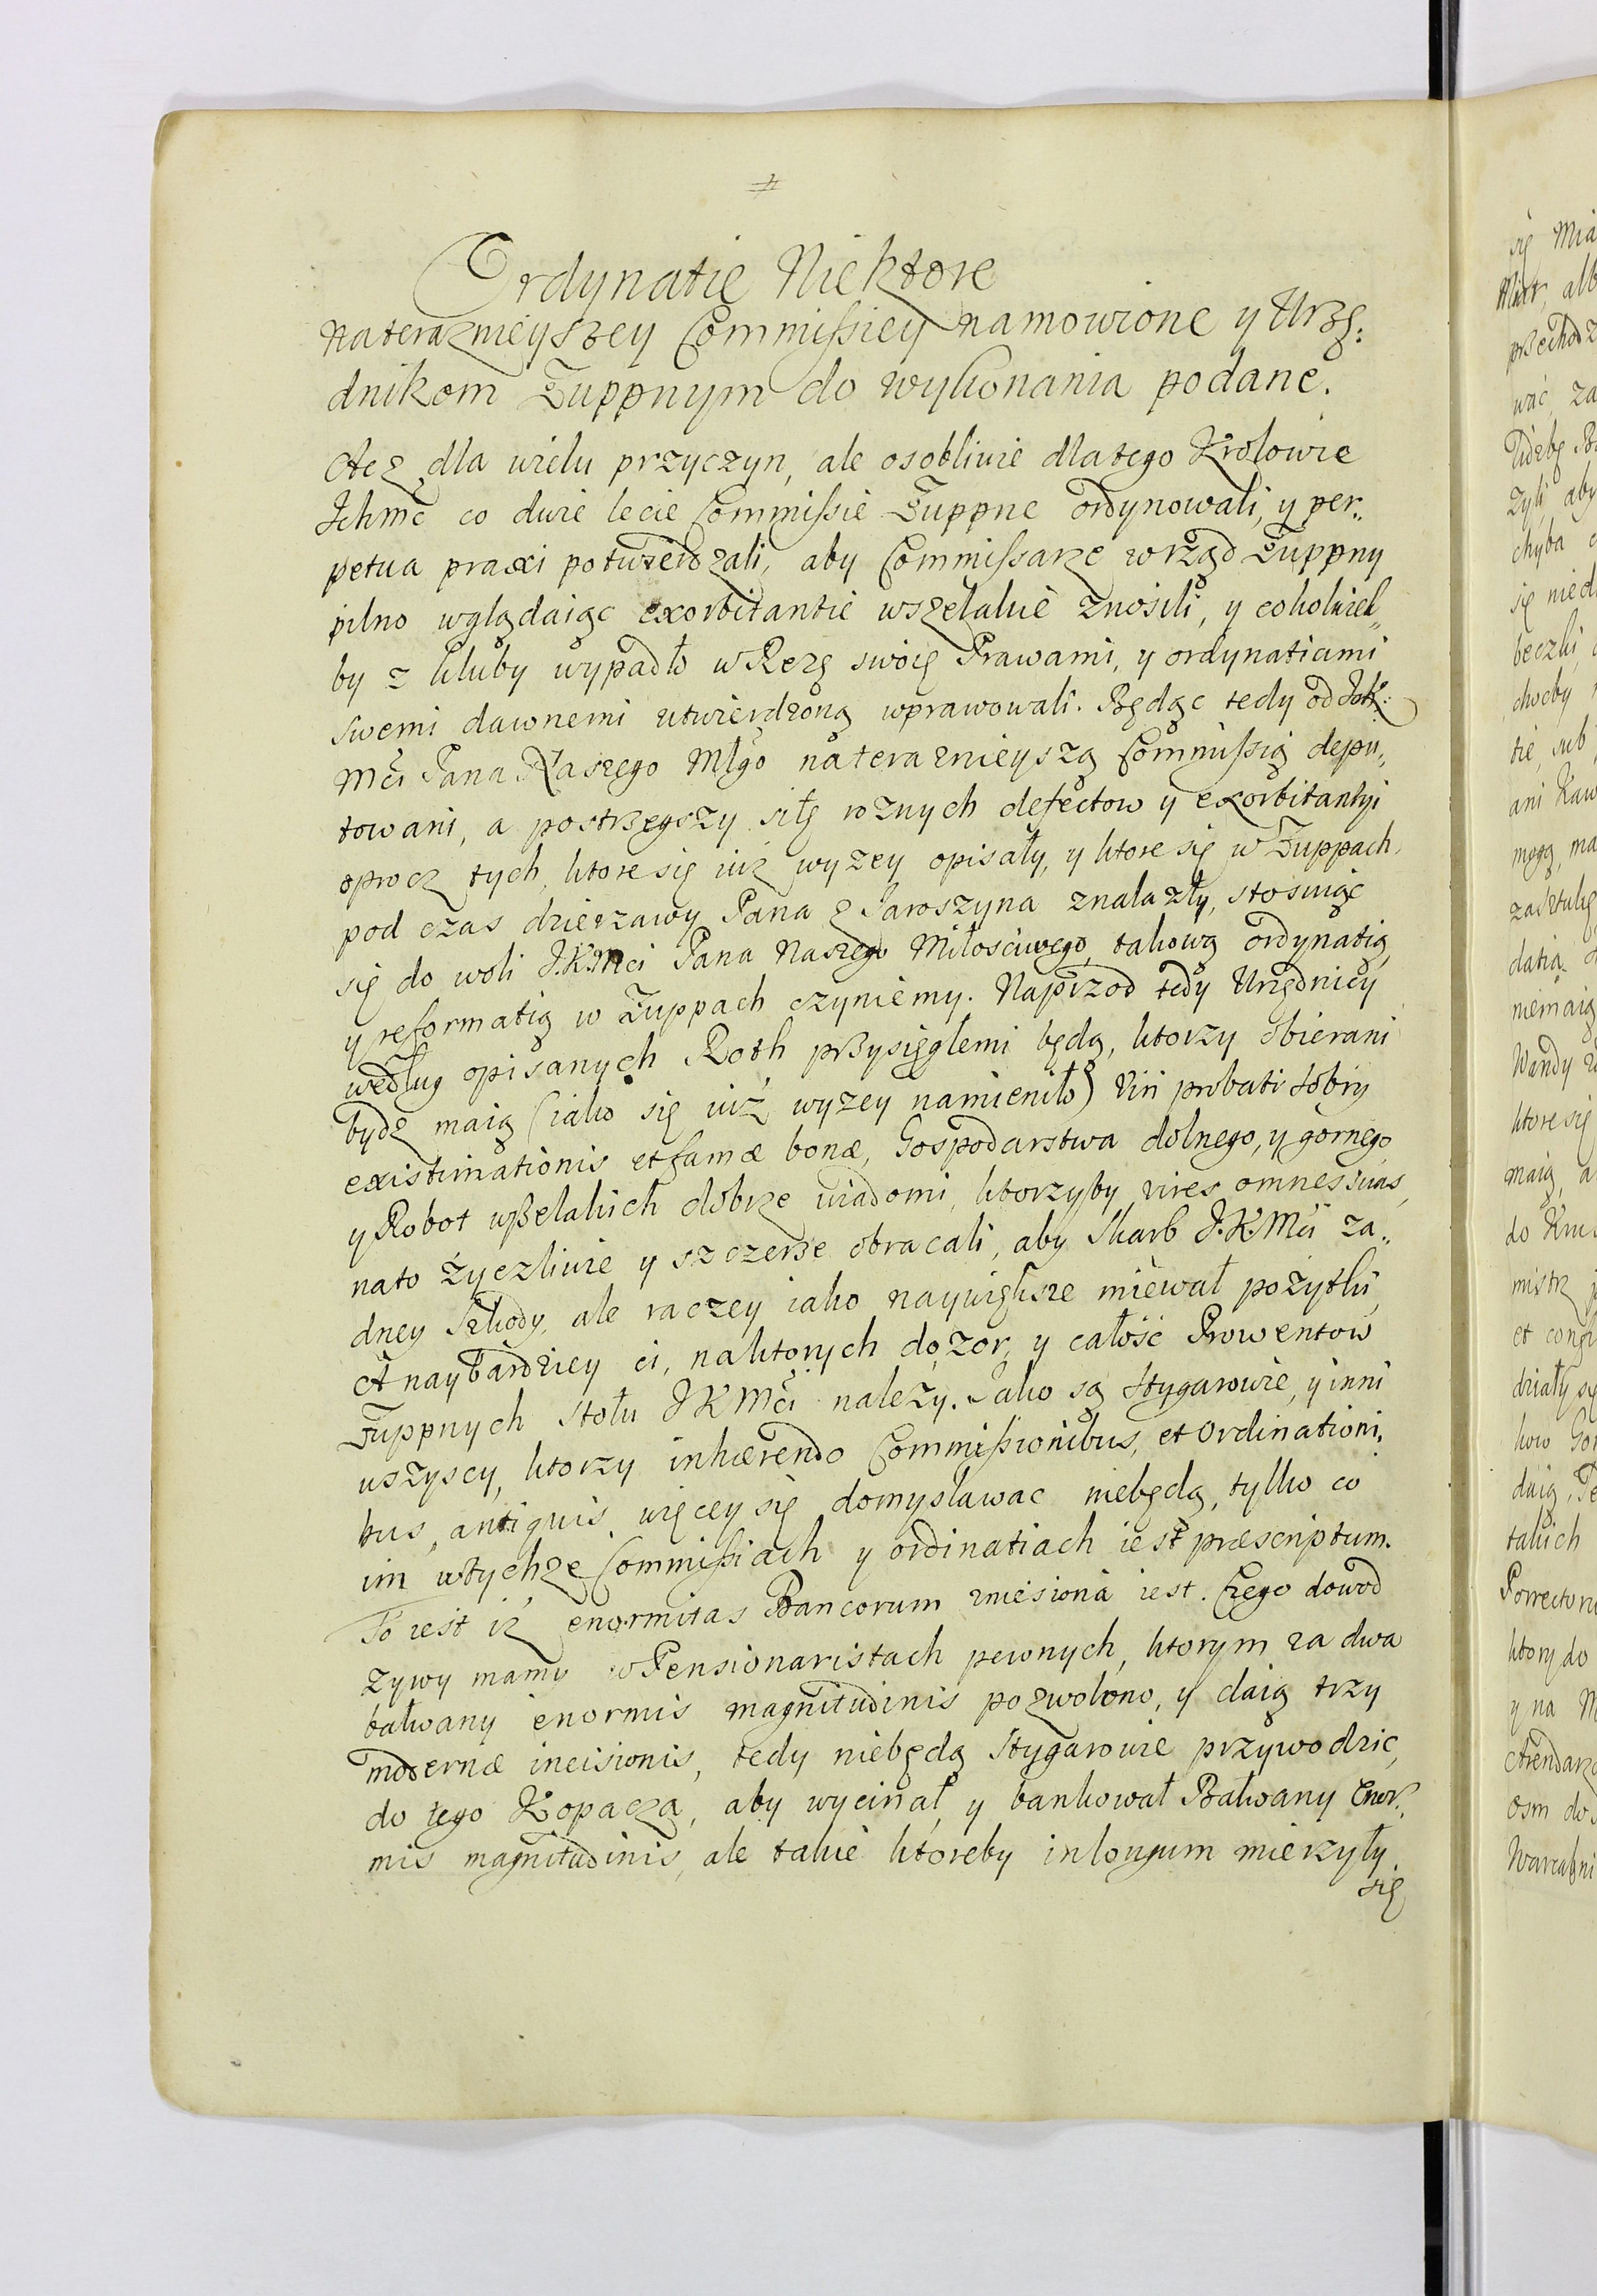 Ordynatie Niektore
Nateraznieyszey Commissiey namowione y Urzę:
dnikom Żuppnym do wykonania podane.
Acz dla wielu przyczyn, ale osobliwie dlatego Krolowie
Ichmć co dwie lecie Commissie Żuppne ordynowali, y per„
petua praxi potwierdzali, aby Commissarze w rząd Żuppny
pilno wglądaiąc exorbitantie wszelakie znosili, y cokolwiek„
by z kluby wypadło w Rezę swoię Prawami, y ordynatiami
swemi dawnemi utwierdzoną wprawowali. Będąc tedy od JoK:
Mći Pana Naszego Młgo naterazńieyszą Commissią depu„
towani, a postrzegszy siłę roznych defectow y exorbitantyi
oprocz tych, ktore się iuz wyzey opisały, y ktore się w Żuppach,
pod czas dzierzawy Pana z Jaroszyna znalazły, stosuiąc
się do woli J.K.Mci Pana Naszego Miłosciwego, takową ordynatią,
y reformatią w Żuppach czyniemy. Naprzod tedy Urzędnicy
według opisanych Roth przysięglemi będą, ktorzy obierani
bydz maią (iako się iuż wyzey namieniło) Viri probati dobry
existimationis et famæ bonæ, Gospodarstwa dolnego, y gornego
y Robot wszelakich dobrze wiadomi, ktorzyby vires omnes suas
nato życzliwie y szczerze obracali, aby Skarb J.K.Mći za„
dney szkody, ale raczey iako naywiększe miewał pożytki,
A naybardziey ci, naktorych dozor, y całość Prowentow
Żuppnych stołu J K Mći należy. Jako są Stygarowie, y inni
wszyscy, ktorzy inhærendo Commissionibus, et Ordinationi„
bus, antiquis, więcey się domysławac niebędą, tylko co
im wtychze Commissiach y ordinatiach iest præscriptum.
To iest iż enormitas Bancorum zniesiona iest. Czego dowod
zywy mamy w Pensionaristach pewnych, ktorym za dwa
bałwany enormis magnitudinis pozwolono, y daią trzy
modernæ incisionis, tedy niebędą Stygarowie przywodzic,
do tego Kopacza, aby wycinał, y bankował Bałwany Enor„
mis magnitudinis, ale takie ktoreby inlongum mierzyły
się